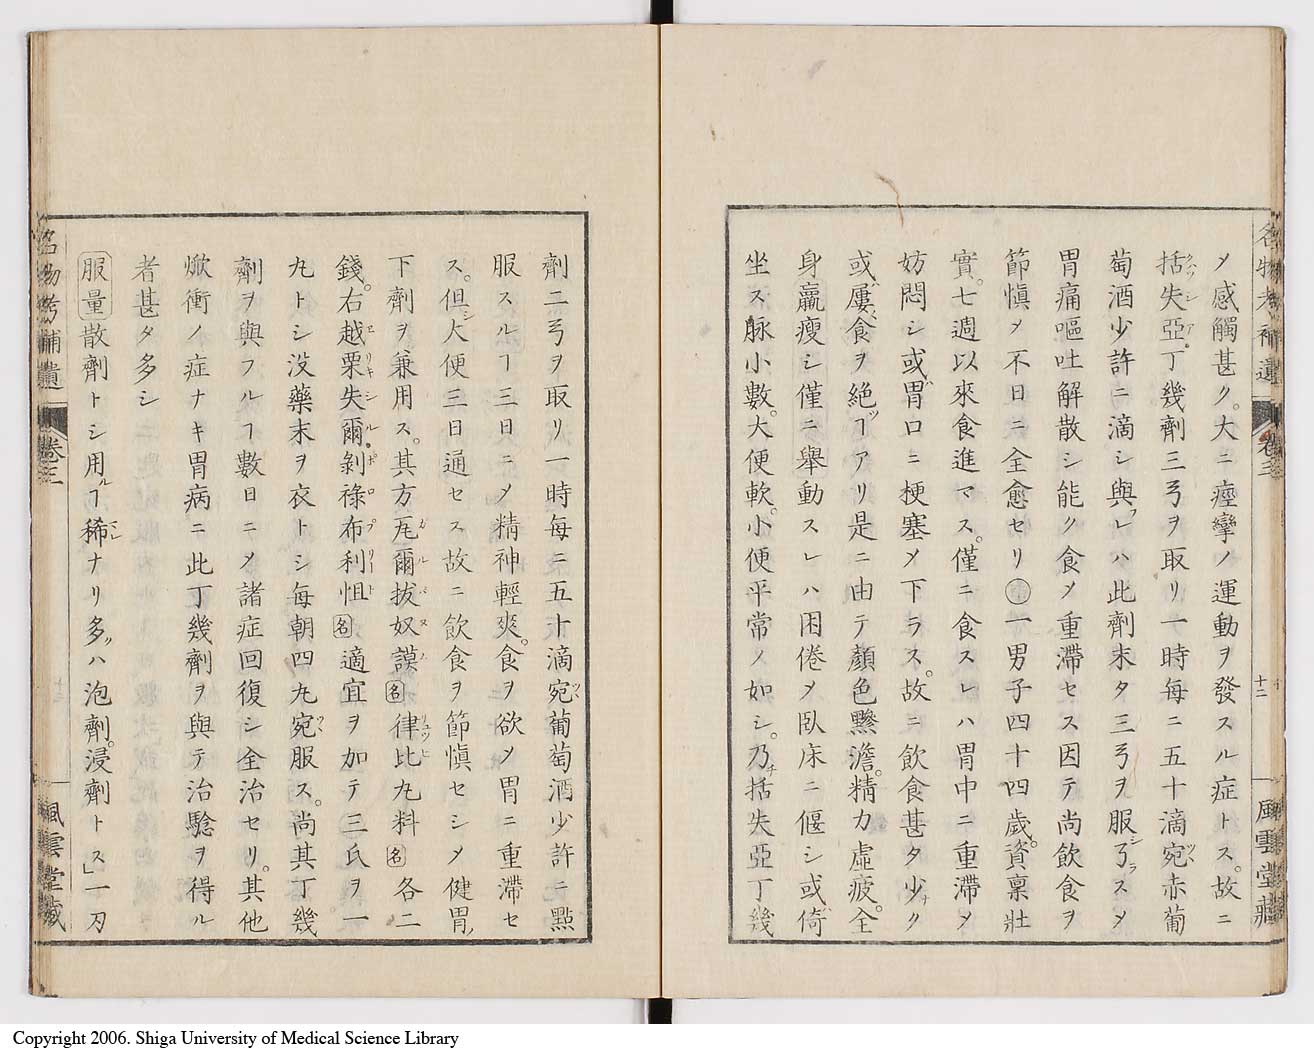 名物考補遺 卷三 十二 風雲堂藏
メ感觸甚ク。大ニ痙攣ノ運動ヲ發スル症トス。故ニ
括失亞丁幾劑三弓ヲ取リ一時每ニ五十滴宛赤葡
萄酒少許ニ滴シ與レハ此劑末タ三弓ヲ服了スメ
胃痛嘔吐解散シ能ク食メ重滯セス因テ尚飲食ヲ
節愼メ不日ニ全愈セリ 一男子四十四歲。資稟壯
實。七週以來食進マス。僅ニ食スレハ胃中ニ重滯メ
妨悶シ或胃口ニ梗塞メ下ラス。故ニ飲食甚タ少ク
或屢食ヲ絶ヿアリ是ニ由テ顏色黲澹。精力虛疲。全
身羸瘦シ僅ニ舉動スレハ困倦メ臥床ニ偃シ或倚
坐ス脉小數。大便軟。小便平常ノ如シ。乃括失亞丁幾
劑二弓ヲ取リ一時每ニ五十滴宛葡萄酒少許ニ點
服スルヿ三日ニメ精神輕爽。食ヲ欲メ胃ニ重滯セ
ス。但大便三日通セス故ニ飲食ヲ節愼セシメ健胃
下劑ヲ兼用ス。其方㽿爾拔奴謨名律比丸料名各二
錢。右越栗失爾剝祿布利怛名適宜ヲ加テ三氏ヲ一
丸トシ没藥末ヲ衣トシ每朝四丸宛服ス。尚其丁幾
劑ヲ與フルヿ數日ニメ諸症回復シ全治セリ。其他
焮衝ノ症ナキ胃病ニ此丁幾劑ヲ與テ治驗ヲ得ル
者甚タ多シ
服量散劑トシ用ルヿ稀ナリ多ハ泡劑。浸劑トス」一刀
名物考補遺 卷三 風雲堂藏
Copyright 2006. Shiga University of Medical Science Library